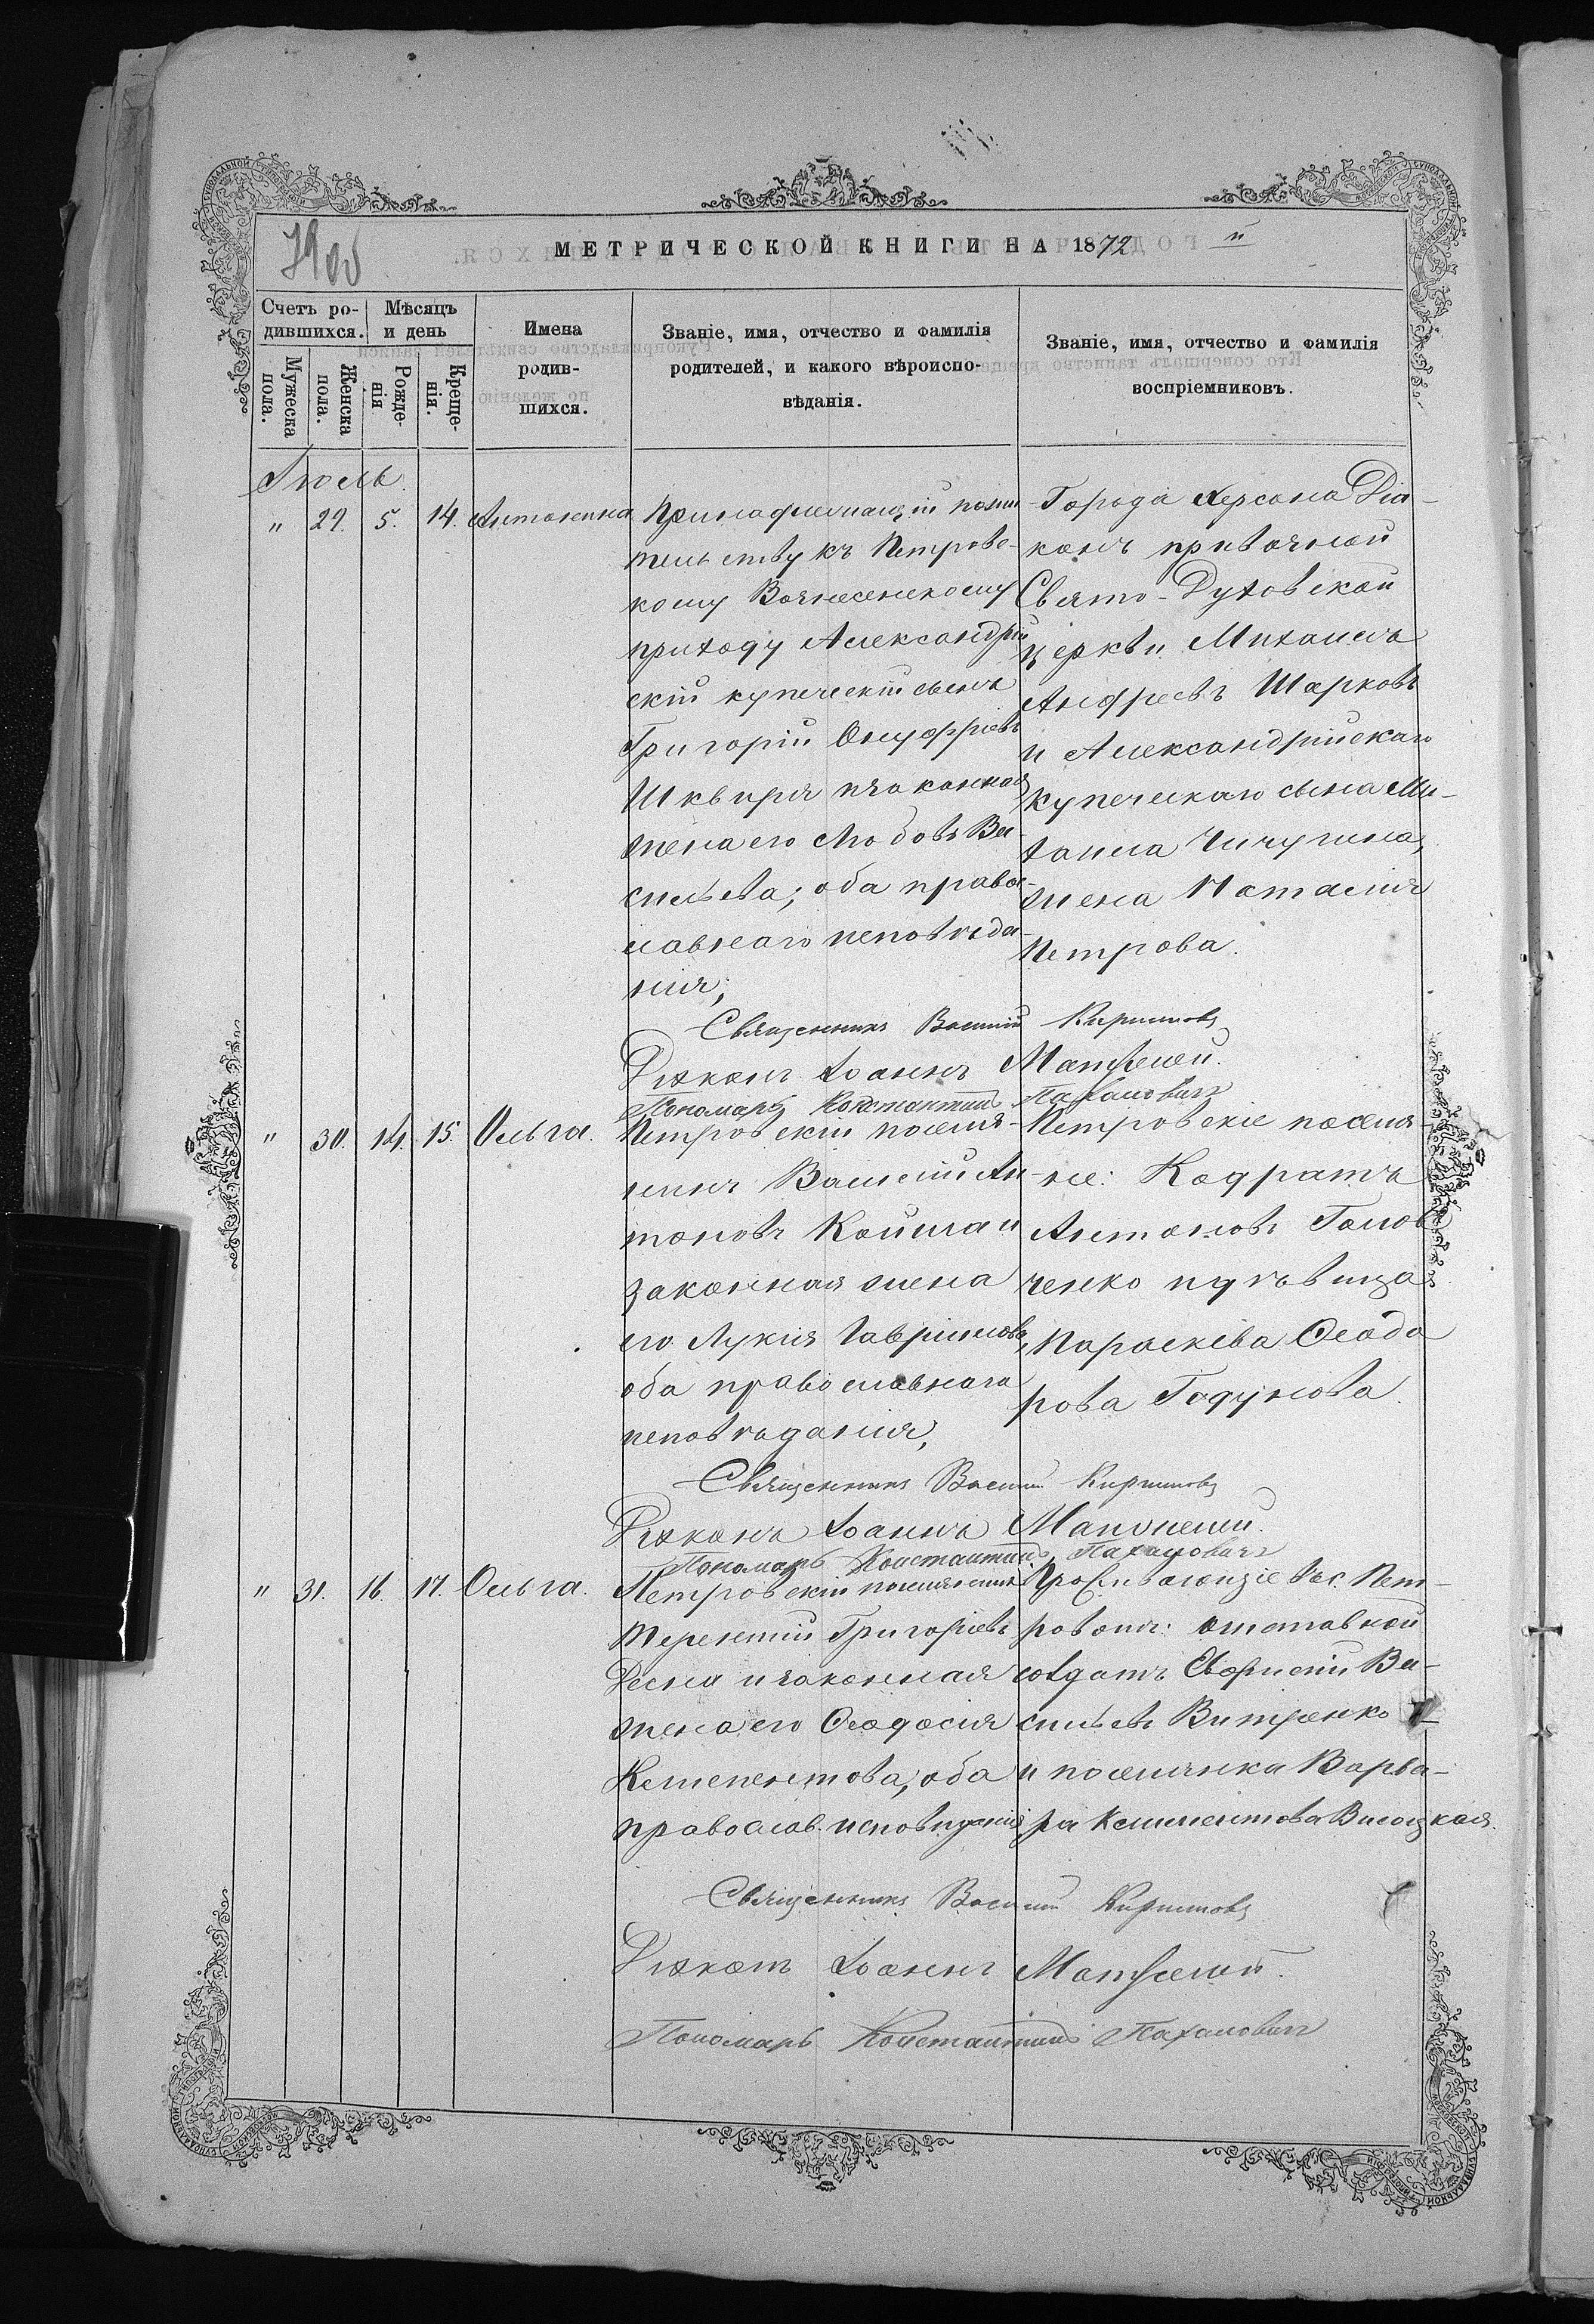 МЕТРИЧЕСКОЙ КНИГИ НА 1872
Счетъ ро-
дившихся.
Мѣсяцъ
и день
Мужеска
пола.
Женска
пола.
Рожде-
нія
Креще-
нія.
Имена
родив-
шихся.
Званіе, имя, отчество и фамилія
родителей, и какого вѣроиспо-
вѣданія.
Званіе, имя, отчество и фамилія
воспріемниковъ.
Іюль.
" 29. 5. 14. Антонина
Принадлежащій
тельству къ Петровс-
кому Вознесенскому
приходу Александрій
скій купеческій сынъ
Григорій Онуфріевъ
Шквиря и законная
жена его Любовь Ва-
сильева; оба правос-
лавнаго исповѣда-
нія;
Города Херсона Діа-
конъ
Свято-Духовской
церкви Михаилъ
Андреевъ Шарковъ
и Александрійскаго
купеческаго сына Ми-
хаила Чичугина,
жена Наталія
Петрова.
Священникъ Василій Кириловъ
Діаконъ Іоаннъ Матѳеевъ.
Пономарь Константинъ
" 30. 14. 15. Ольга.
Петровскій поселя-
нинъ Василій Ан-
тоновъ Коймай
законная жена
его Лукія Гавриилова,
оба православнаго
исповѣданія,
Петровскіе поселя-
не: Кодратъ
Антоновъ Голов
ченко и дѣвица
Параскева Ѳеодо
рова Годунова.
Священникъ Василій Кириловъ
Діаконъ Іоаннъ
Пономарь Константинъ
" 31. 16. 17. Ольга.
Петровскій поселянинъ
Терентій Григоріевъ
Десна и законная
жена его Ѳеодосія
Климентова, оба
православ. исповѣданія
Проживающіе въ с. Пет-
ровомъ: отставной
солдатъ Ва-
сильевъ Витренко
и поселянка Варва-
ра Климентова Висоцкая.
Священникъ Василій Кириловъ
Діаконъ Іоаннъ Матѳеевъ.
Пономарь Константинъ